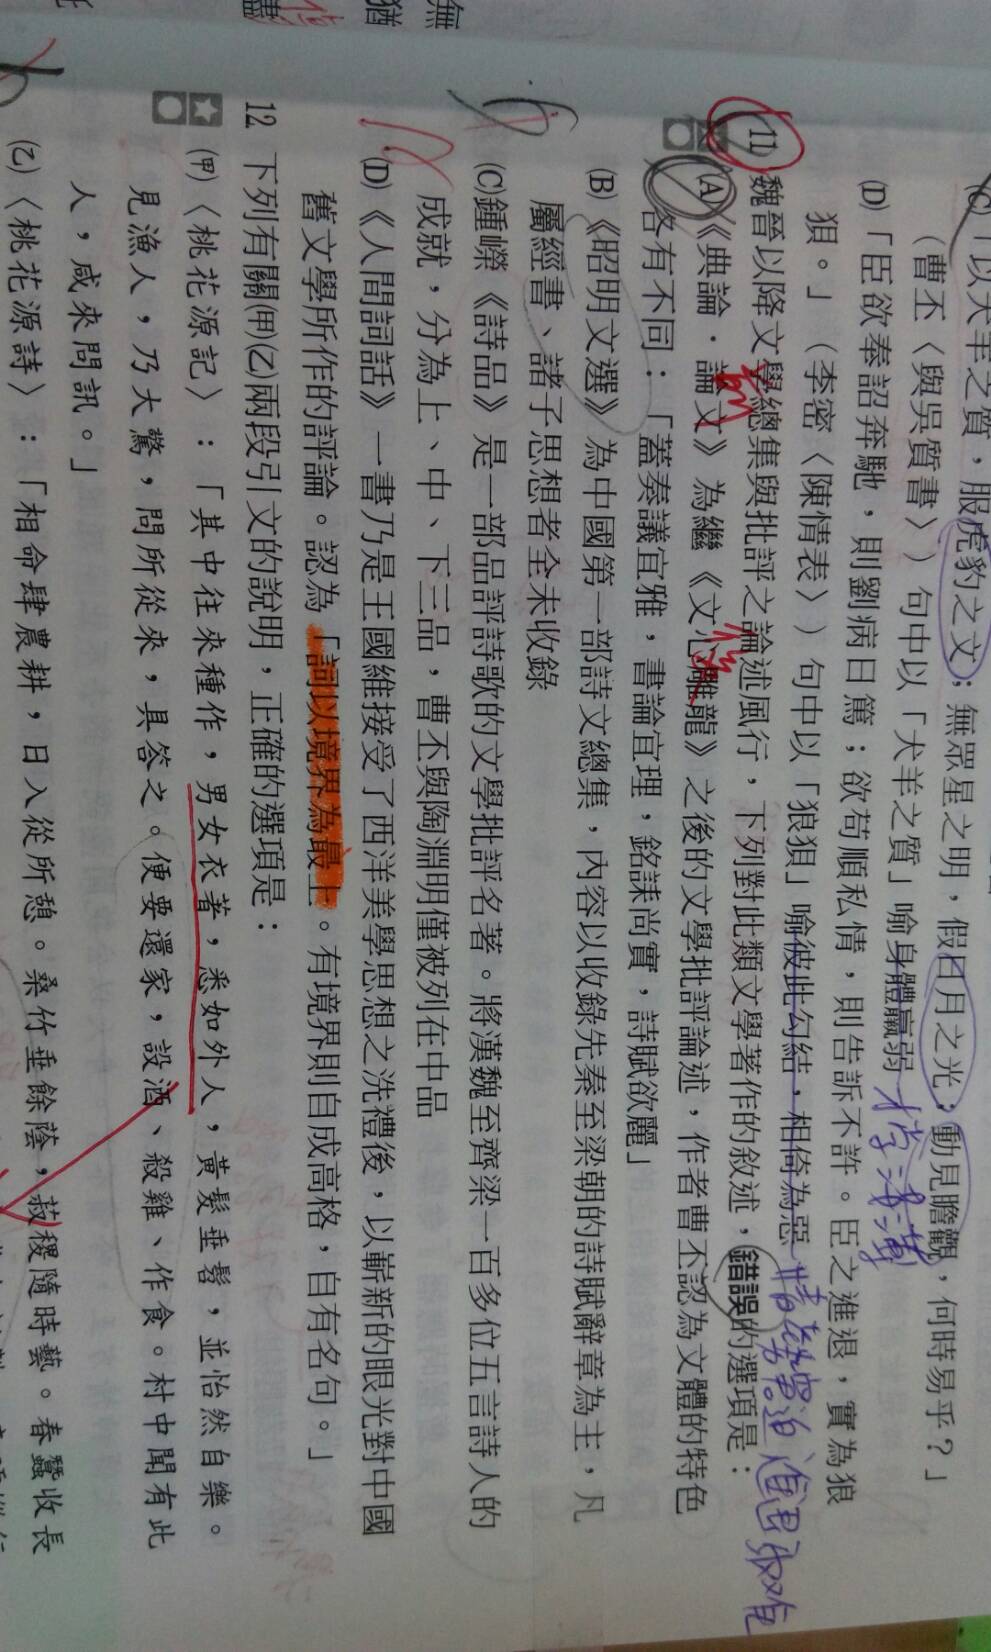 無
猶
(C)「以犬羊之質，服虎豹之文；無眾星之明，假日月之光；動見瞻觀，何時易乎？」
（曹丕〈與吳質書〉）句中以「犬羊之質」喻身體羸弱 才學淺薄
(D)「臣欲奉詔奔馳，則劉病日篤；欲苟順私情，則告訴不許。臣之進退，實為狼
狽。」（李密〈陳情表〉）句中以「狼狽」喻彼此勾結，相倚為惡 情勢窘迫 進退兩難
11 魏晉以降文學總集與批評之論述風行，下列對此類文學著作的敘述，錯誤的選項是：
(A)《典論．論文》為繼《文心雕龍》之後的文學批評論述，作者曹丕認為文體的特色
各有不同：「蓋奏議宜雅，書論宜理，銘誄尚實，詩賦欲麗」
(B)《昭明文選》為中國第一部詩文總集，內容以收錄先秦至梁朝的詩賦辭章為主，凡
屬經書、諸子思想者全未收錄
(C)鍾嶸《詩品》是一部品評詩歌的文學批評名著。將漢魏至齊梁一百多位五言詩人的
成就，分為上、中、下三品，曹丕與陶淵明僅被列在中品
(D)《人間詞話》一書乃是王國維接受了西洋美學思想之洗禮後，以嶄新的眼光對中國
舊文學所作的評論。認為「詞以境界為最上。有境界則自成高格，自有名句。」
12 下列有關(甲)(乙)兩段引文的說明，正確的選項是：
(甲)〈桃花源記〉：「其中往來種作，男女衣著，悉如外人，黃髮垂髫，並怡然自樂。
見漁人，乃大驚，問所從來，具答之。便要還家，設酒、殺雞、作食。村中聞有此
人，咸來問訊。」
(乙)〈桃花源詩〉：「相命肆農耕，日入從所憩。桑竹垂餘蔭，菽稷隨時藝。春蠶收長